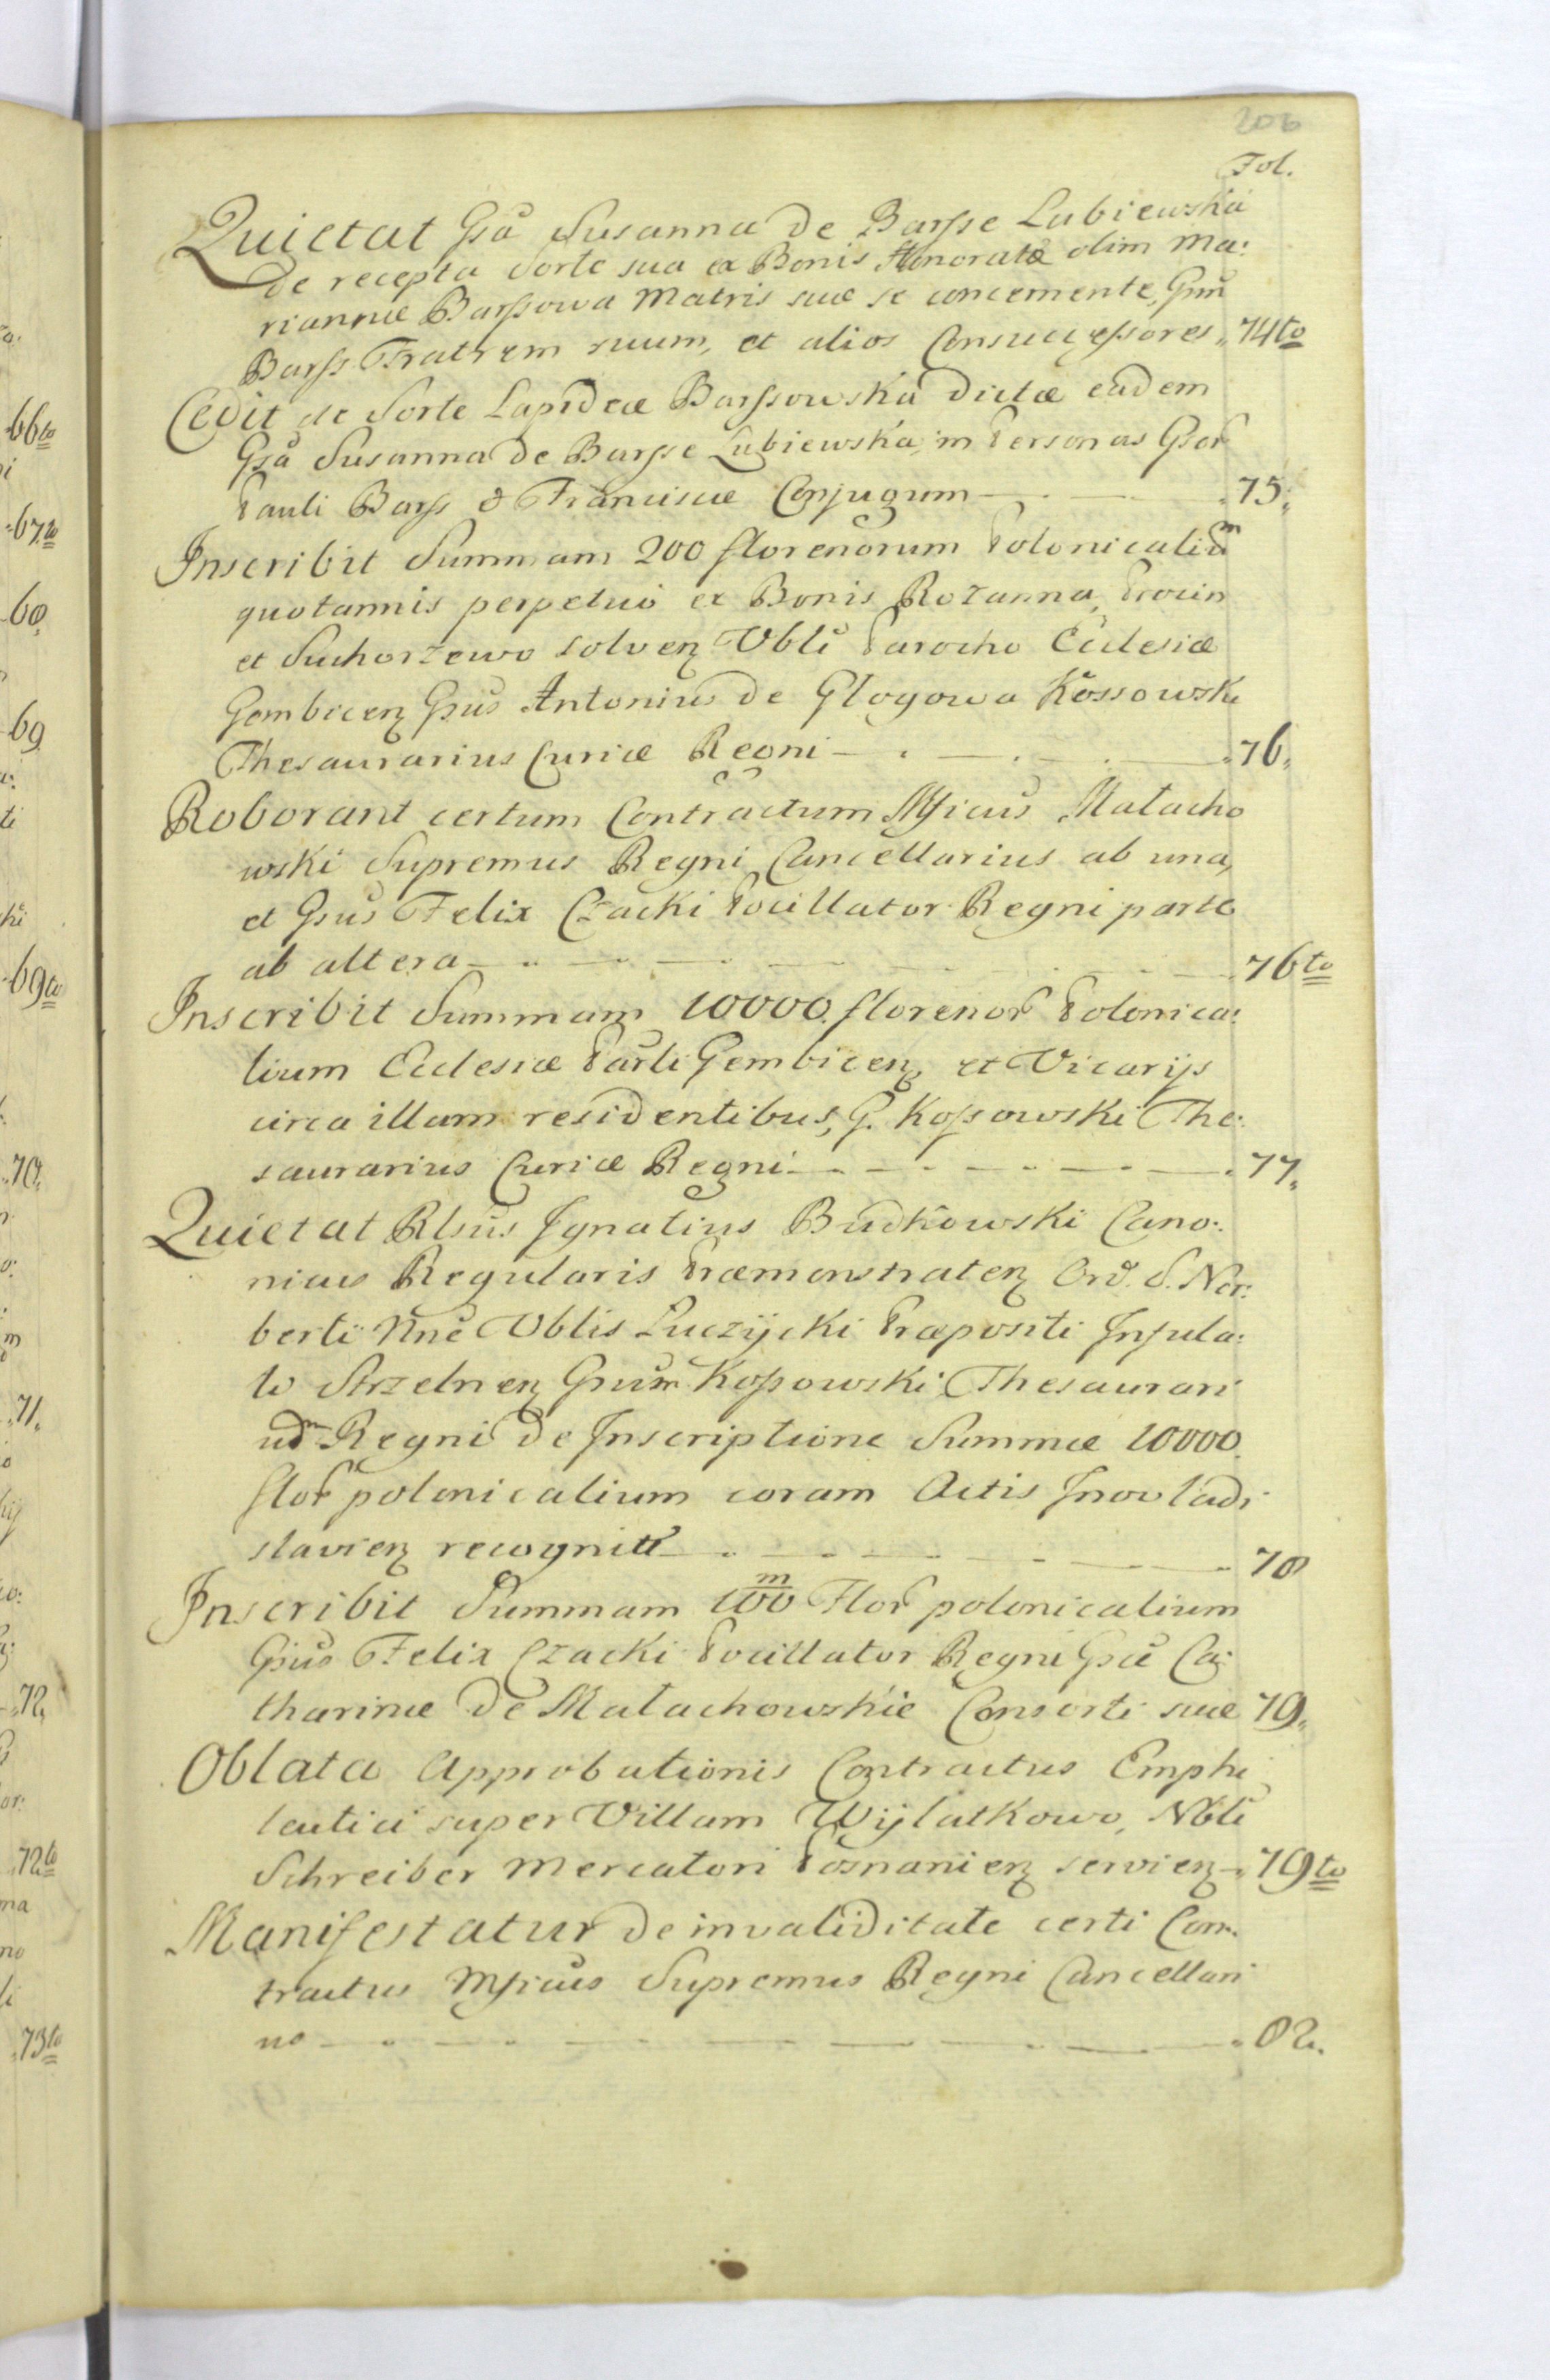 206
Fol.
Quietat Gsa Susanna de Barsse Lubiewska
de recepta Sorte sua ex Bonis Honoratæ olim Ma:
riannæ Barssowa Matris suæ se concernente, Gsum
Barss Fratrem suum, et alios Consuccessores 74to
Cedit de Sorte Lapideæ Barssowska dictæ eadem
Gsa Susanna de Barsse Lubiewska, in Personas Gsor
Pauli Barss & Franciscæ Conjugum 75.
Inscribit Summam 200 florenorum Polonicalium
quotannis perpetuo ex Bonis Rozanna, Procin
et Suchorzewo solven Vbli Parocho Ecclesiæ
Gembicen Gsus Antonius de Glogowa Kossowski
Thesaurarius Curiæ Regni 76.
Roborant certum Contractum Msicus Małacho
wski Supremus Regni Cancellarius ab una,
et Gsus Felix Czacki Pocillator Regni parte
ab altera 76to
Inscribit Summam 10000. florenor Polonica:
lium Ecclesiæ Parli Gembicen et Vicarijs
circa illam residentibus, G. Kossowski The:
saurarius Curiæ Regni 77.
Quietat Rlsus Ignatius Budkowski Cano:
nicus Regularis Præmonstraten Ord. S. Nor:
berti Nne Vblis Luczycki Præpositi Infula:
to Strzelnen Gsum Kossowski Thesaurari
um Regni de Inscriptione Summæ 10000.
flor polonicalium coram Actis Inovladi
slavien recognitæ 78
Inscribit Summam 100 m Flor polonicalium
Gsus Felix Czacki Pocillator Regni Gsæ Ca:
tharinæ de Małachowskie Consorti suæ 79.
Oblata Approbationis Contractus Emphi
teutici super Villam Wylatkowo, Nbli
Schreiber Mercatori Posnanien servien 79to
Manifestatur de invaliditate certi Con:
tractus Msicus Supremus Regni Cancellari
us 82.
66to
67to
68.
69
69to
70.
71.
72.
72to
73to